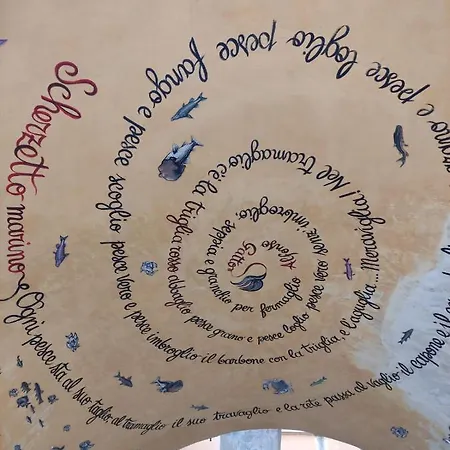 Scherzetto marino
Ogni pesce sta al suo taglio, al tramaglio il suo travaglio e la rete passa al vaglio: il capone e il
e pesce loglio pesce fango e pesce scoglio pesce vero e pesce imbroglio il barbone con la triglia, e l'aguglia... Meraviglia! Nel tramaglio c'è la triglia rosso abbaglio pesce grano e pesce loglio pesce vero sono imbroglio, seppia e granchio per fermaglio
Alfonso Gatto